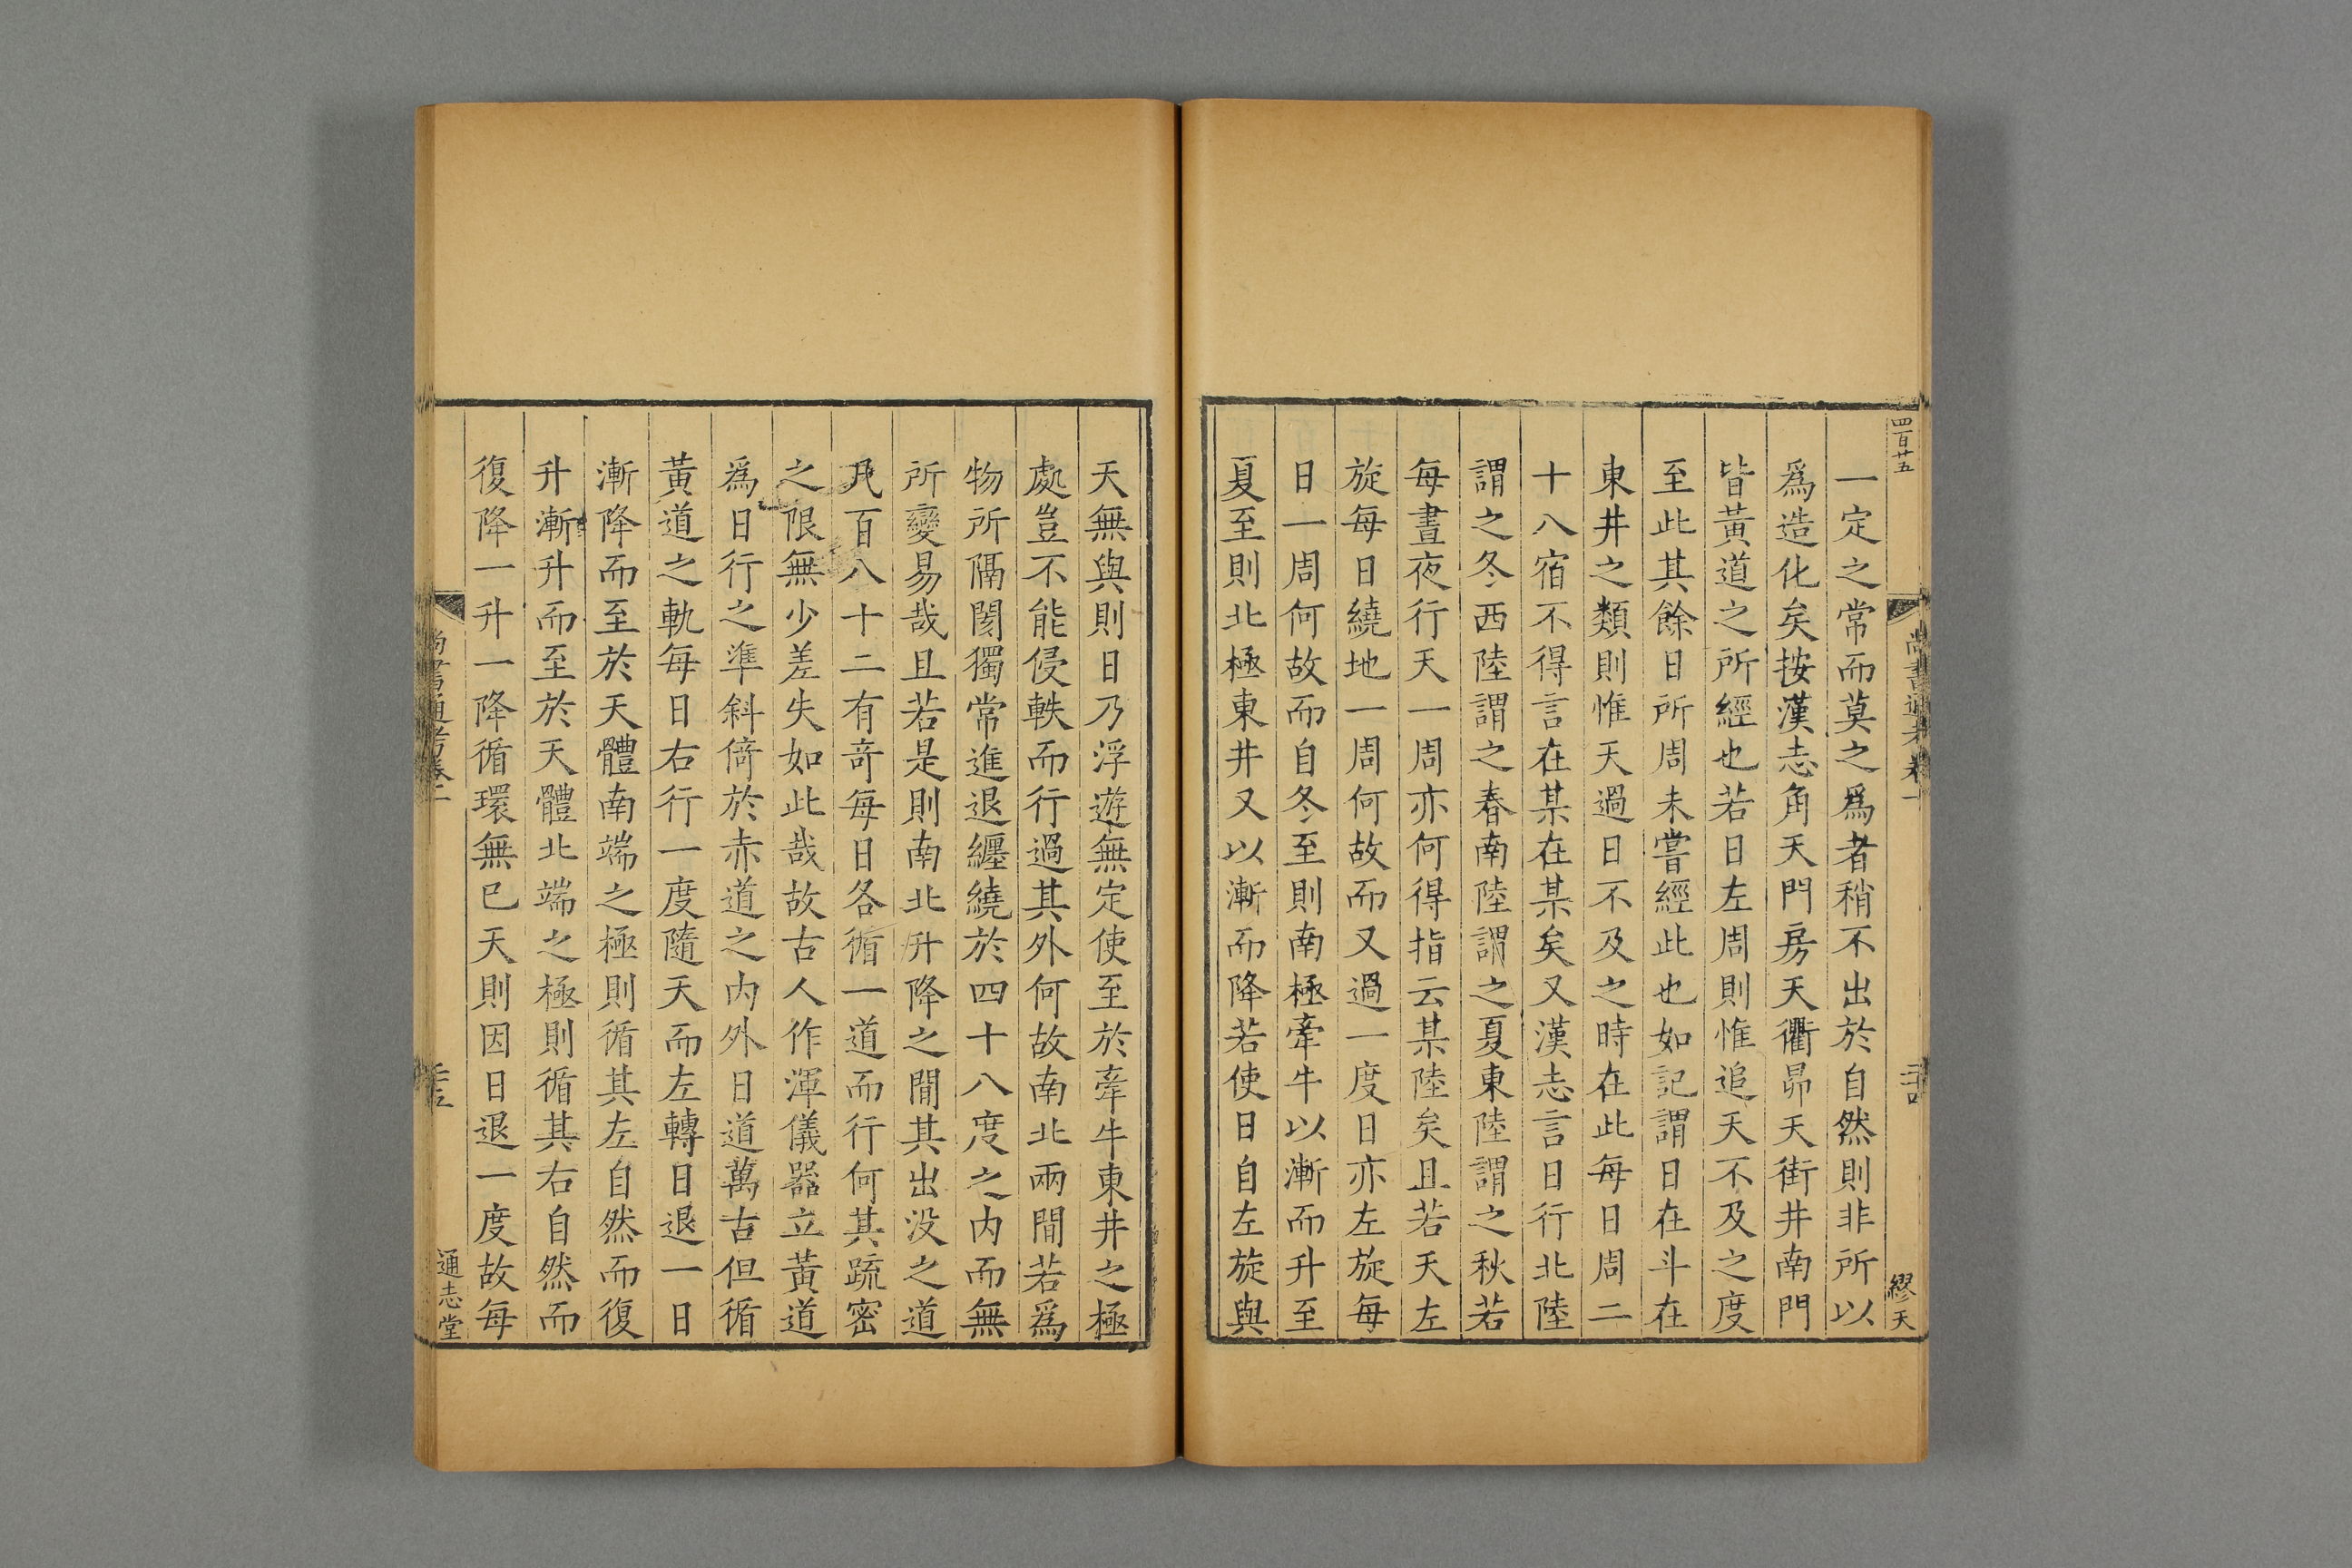 四百廿五
繆天
一定之常而莫之爲者稍不出於自然則非所以
爲造化矣按漢志角天門房天衢昴天街井南門
皆黃道之所經也若日左周則惟追天不及之度
至此其餘日所周未嘗經此也如記謂日在斗在
東井之類則惟天過日不及之時在此每日周二
十八宿不得言在某在某矣又漢志言日行北陸
謂之冬西陸謂之春南陸謂之夏東陸謂之秋若
每晝夜行天一周亦何得指云某陸矣且若天左
旋每日繞地一周何故而又過一度日亦左旋每
日一周何故而自冬至則南極牽牛以漸而升至
夏至則北極東井又以漸而降若使日自左旋與
天無與則日乃浮遊無定使至於牽牛東井之極
處豈不能侵軼而行過其外何故南北兩間若爲
物所隔閡獨常進退纏繞於四十八度之内而無
所變易哉且若是則南北升降之間其出没之道
凡百八十二有奇每日各循一道而行何其疏密
之限無少差失如此哉故古人作渾儀器立黃道
爲日行之準斜倚於赤道之内外日道萬古但循
黃道之軌每日右行一度隨天而左轉日退一日
漸降而至於天體南端之極則循其左自然而復
升漸升而至於天體北端之極則循其右自然而
復降一升一降循環無已天則因日退一度故每
尚書通考卷二
通志堂